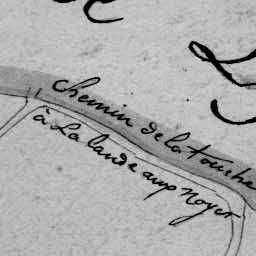 Chemin de la touche
à La lande aux Noyer